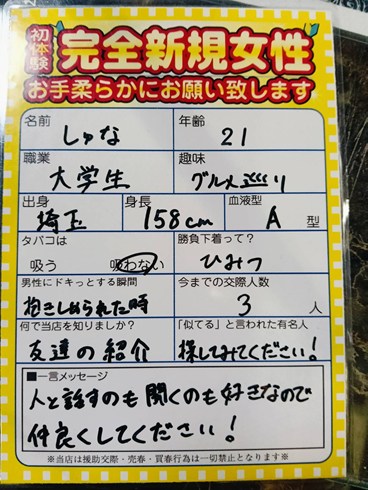 初体験
完全新規女性
お手柔らかにお願い致します
名前
年齢
しゅな
21
職業
趣味
大学生
グルメ巡り
出身
身長
血液型
埼玉
158cm
A 型
タバコは
勝負下着って?
吸う 吸わない
ひみつ
男性にドキっとする瞬間
今までの交際人数
抱きしめられた時
3 人
何で当店を知りましたか?
「似てる」と言われた有名人
友達の紹介
探してみてください!
■一言メッセージ
人と話すのも聞くのも好きなので
仲良くしてください!
※当店は援助交際・売春・買春行為は一切禁止となります※